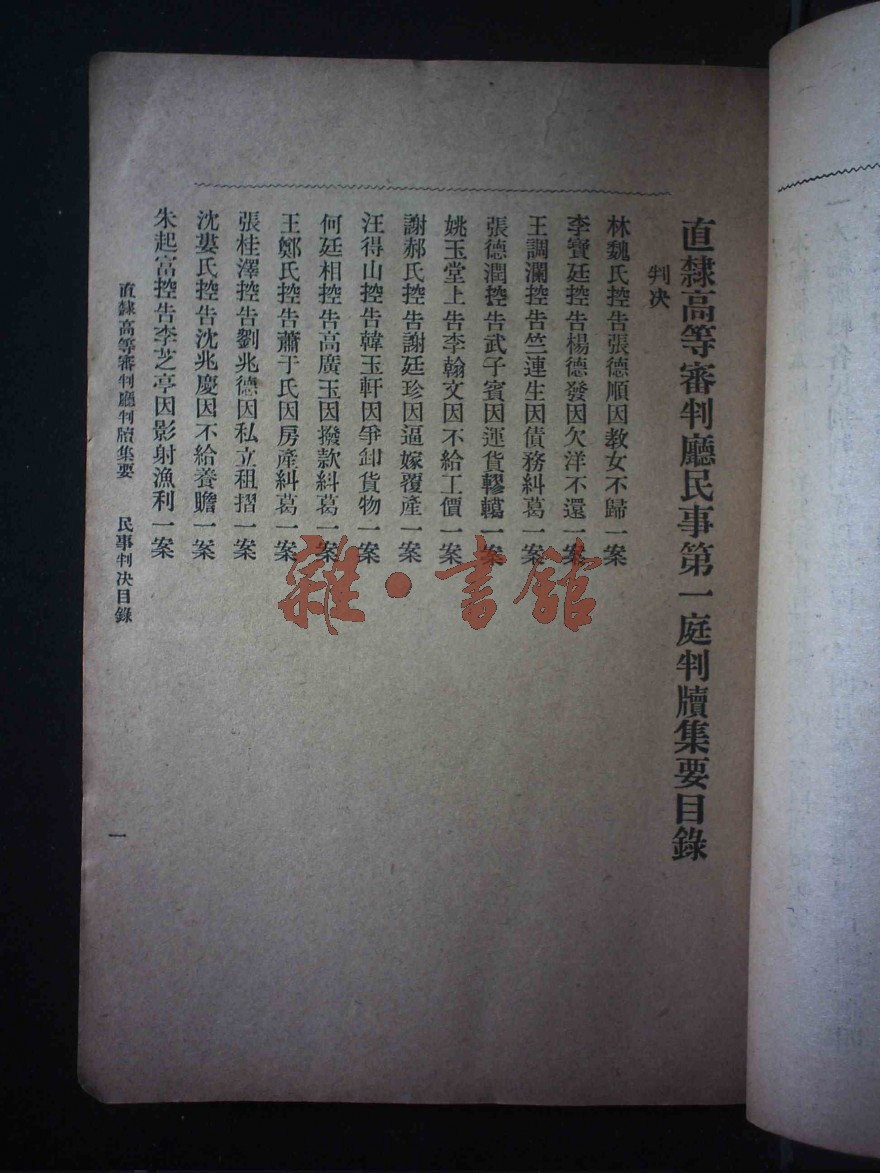 直隸高等審判廳民事第一庭判牘集要目錄
判决
林魏氏控告張德順因教女不歸一案
李寶廷控告楊德發因欠洋不還一案
王調瀾控告竺連生因債務糾葛一案
張德潤控告武子賓因運貨轇轕一案
姚玉堂上告李翰文因不給工價一案
謝郝氏控告謝廷珍因逼嫁覆產一案
汪得山控告韓玉軒因爭卸貨物一案
何廷相控告高廣玉因撥款糾葛一案
王鄭氏控告蕭于氏因房產糾葛一案
張桂澤控告劉兆德因私立租摺一案
沈婁氏控告沈兆慶因不給養贍一案
朱起富控告李芝亭因影射漁利一案
直隸高等審判廳判牘集要 民事判决目錄
一
雜·書館